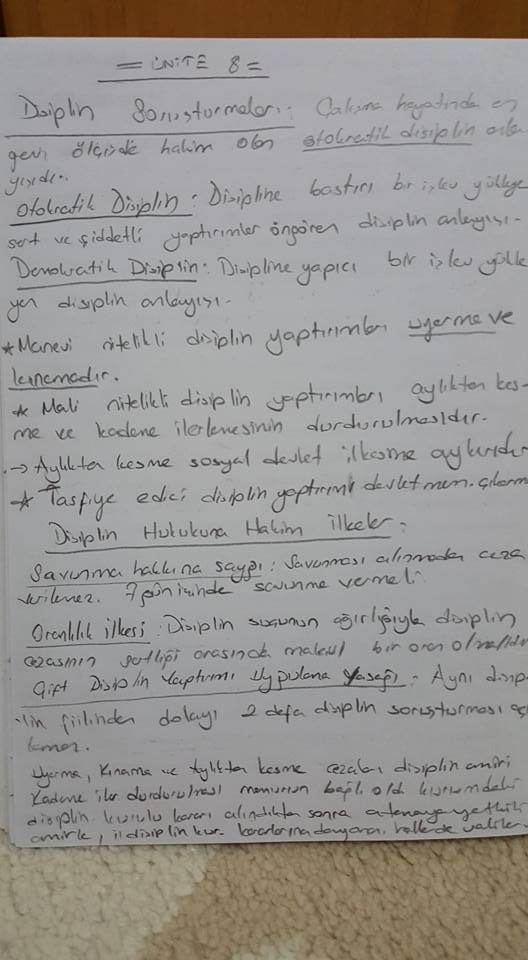 = ÜNİTE 8 =
Disiplin Soruşturmaları: Çalışma hayatında en
geniş ölçüde hakim olan otokratik disiplin anla
yışıdır.
Otokratik Disiplin: Disipline bastırı bir işlev yükleye
sert ve şiddetli yaptırımlar öngören disiplin anlayışı.
Demokratik Disiplin: Disipline yapıcı bir işlev yükle
yen disiplin anlayışı.
* Manevi nitelikli disiplin yaptırımları uyarma ve
kınamadır.
* Mali nitelikli disiplin yaptırımları aylıktan kes-
me ve kademe ilerlemesinin durdurulmasıdır.
→ Aylıktan kesme sosyal devlet ilkesine aykırıdır
* Tasfiye edici disiplin yaptırımı devlet mem. çıkarma
Disiplin Hukukuna Hakim İlkeler:
Savunma hakkına saygı: Savunması alınmadan ceza
verilemez. 7 gün içinde savunma vermeli
Oranlılık ilkesi: Disiplin suçunun ağırlığıyla disiplin
cezasının sertliği arasında makul bir oran olmalıdır
Çift Disiplin Yaptırımı Uygulama Yasağı: Aynı disip
lin fiilinden dolayı 2 defa disiplin soruşturması açı
lamaz.
Uyarma, Kınama ve Aylıktan kesme cezaları disiplin amiri
Kademe iler durdurulması memurun bağlı old. kurumdaki
disiplin kurulu kararı alındıktan sonra atamaya yetkili
amirle, il disiplin kur. kararlarına dayanan hallerde valiler